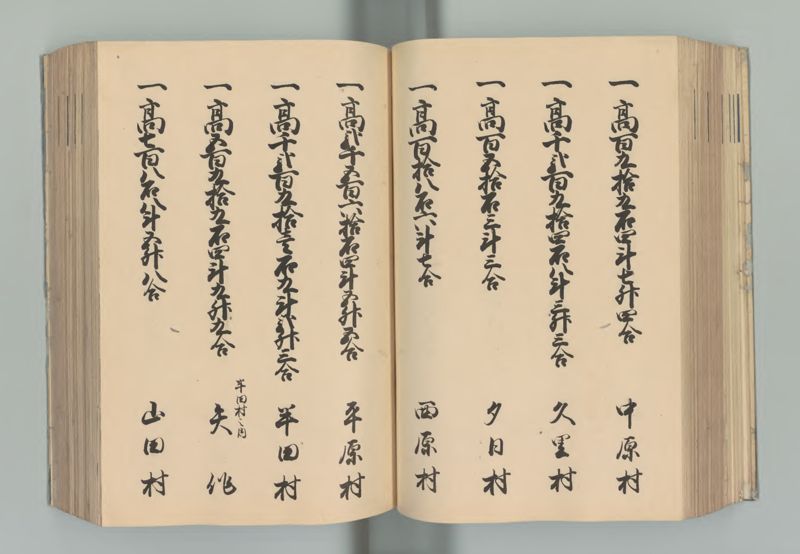 一高百九拾九石四斗七升四合 中原村
一高千弐百九拾四石八斗三升三合 久里村
一高百五拾石三斗三合 夕日村
一高百拾八石六斗七合 西原村
一高弐千五百六拾石四斗五升五合 平原村
一高千弐百九拾壱石九斗弐升三合 半田村
半田村之内
一高五百九拾九石四斗九升九合 矢作
一高七百八石八斗五升八合 山田村